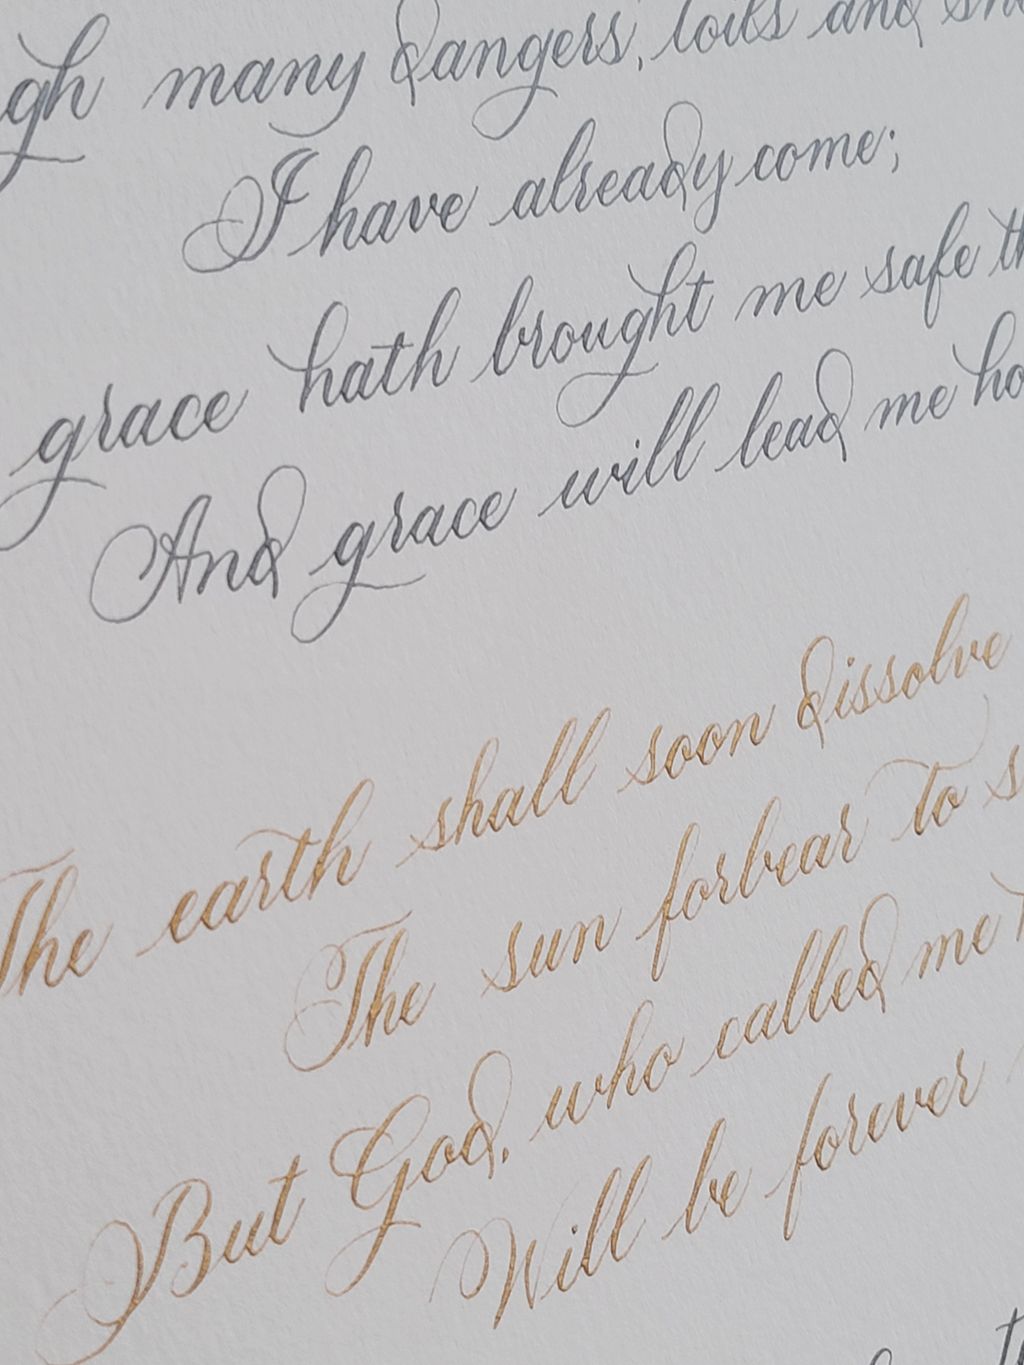 many dangers, toils and
I have already come;
grace hath brought me safe
And grace will lead me
The earth shall soon dissolve
The sun forbear to
But God, who called me
Will be forever